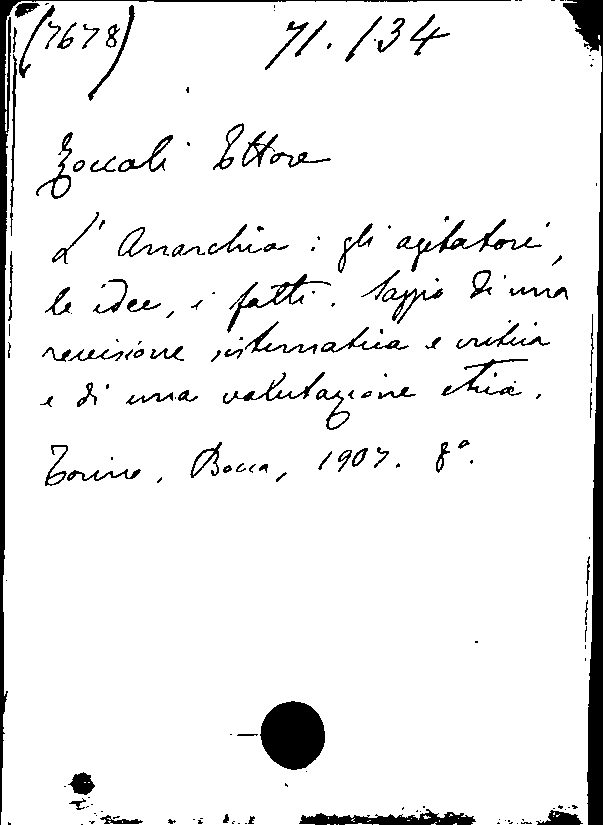 (7678) 71.134
Zoccoli Ettore
L'Anarchia : gli agitatori,
le idee, i fatti. Saggio di una
revisione sistematica e critica
e di una valutazione etica.
Torino, Bocca, 1907. 8°.